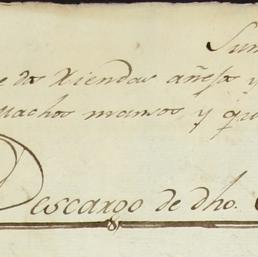 Sum
e dos Riendas añejas y
Machos mansos y qu
Descargo de dho.